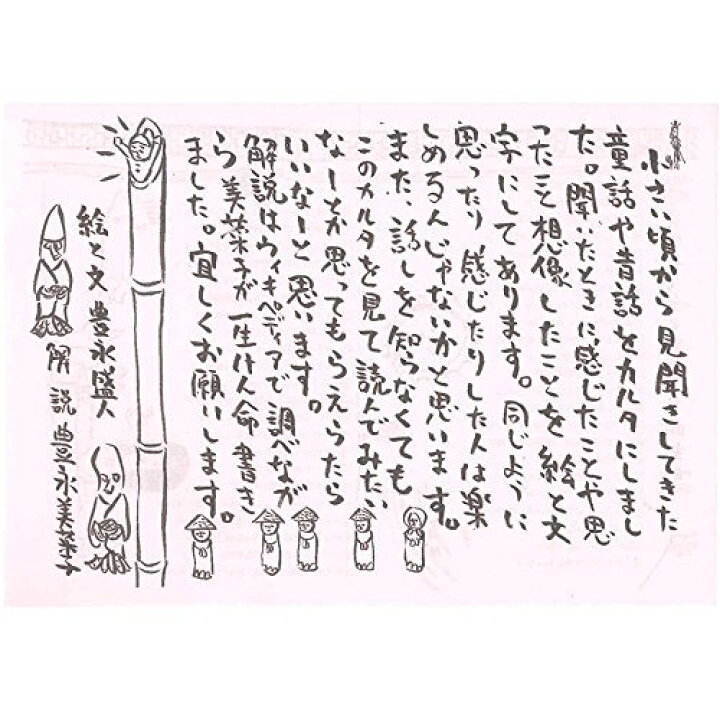 小さい頃から見聞きしてきた
童話や昔話をカルタにしまし
た。聞いたときに感じたことや思
ったこと想像したことを絵と文
字にしてあります。同じように
思ったり感じたりした人は楽
しめる人じゃないかと思います。
また、話しを知らなくても
このカルタを見て読んでみたい
なーとか思ってもらえらたら
いいなーと思います。
解説はウィキペディアで調べなが
ら美菜子が一生けん命書き
ました。宜しくお願いします。
絵と文 豊永盛人
解説 豊永美菜子